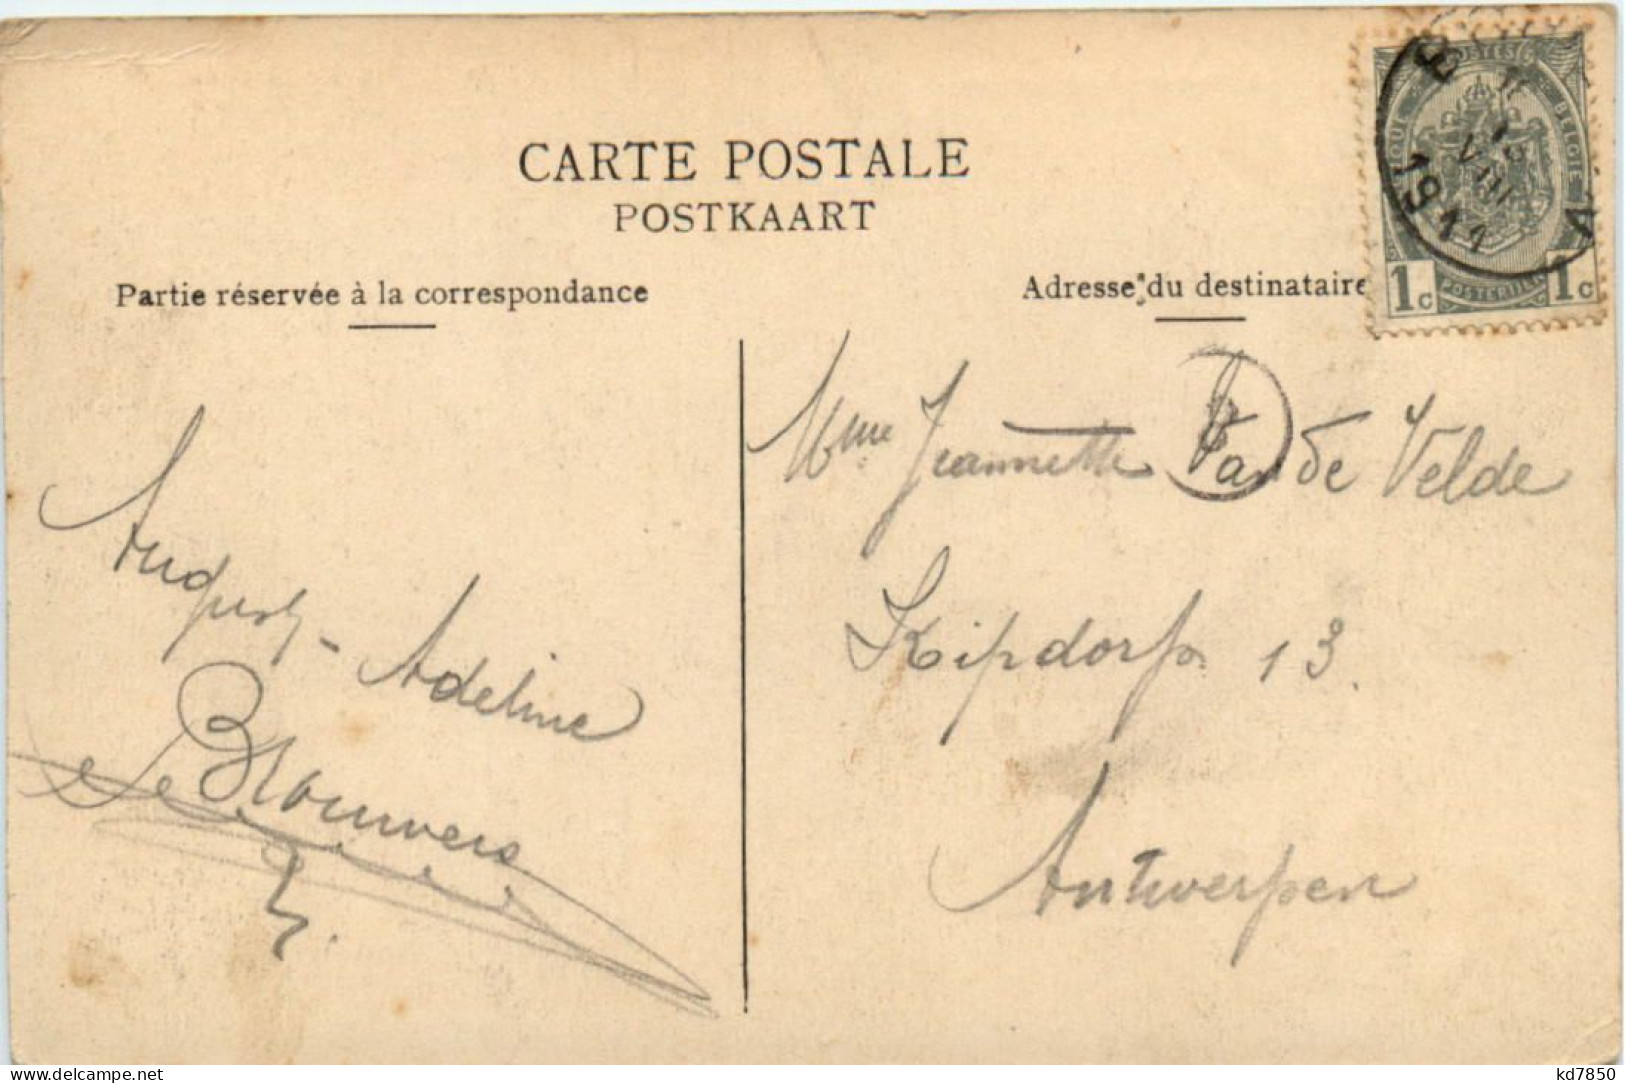 CARTE POSTALE
POSTKAART
Partie réservée à la correspondance
Adresse du destinataire
POSTES
BELGIQUE BELGIE
1c POSTERIJEN 1c
1911
VIII
Mme Jeannette Van de Velde
Kipdorp 13.
Antwerpen
August - Adeline
Brouwers
www.delcampe.net
kd7850